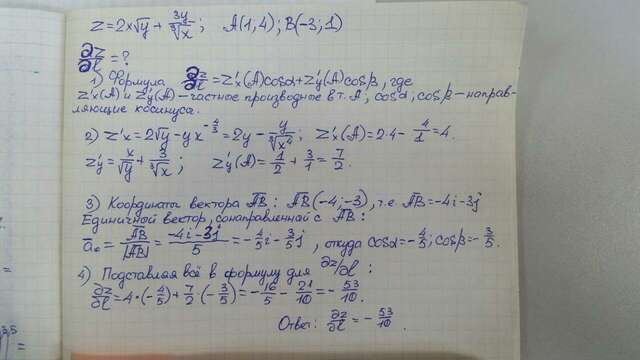 z=2x√y+3y/∛x; A(1;4); B(-3;1)
∂z/∂l=?
1) Формула ∂z/∂l=z'x(A)cosα+z'y(A)cosβ, где
z'x(A) и z'y(A)–частные производные в т. A, cosα, cosβ–направ-
ляющие косинуса.
2) z'x=2√y-yx^(-4/3)=2y-y/∛x⁴; z'x(A)=2·4-4/1=4.
z'y=x/√y+3/∛x; z'y(A)=1/2+3/1=7/2.
3) Координаты вектора AB: AB(-4;-3), т.е. AB=-4i-3j
Единичной вектор, сонаправленной с AB:
a₀=AB/|AB|=(-4i-3j)/5=-4/5i-3/5j, откуда cosα=-4/5; cosβ=-3/5.
4) Подставляя всё в формулу для ∂z/∂l:
∂z/∂l=4·(-4/5)+7/2·(-3/5)=-16/5-21/10=-53/10.
Ответ: ∂z/∂l=-53/10.
3,5
=